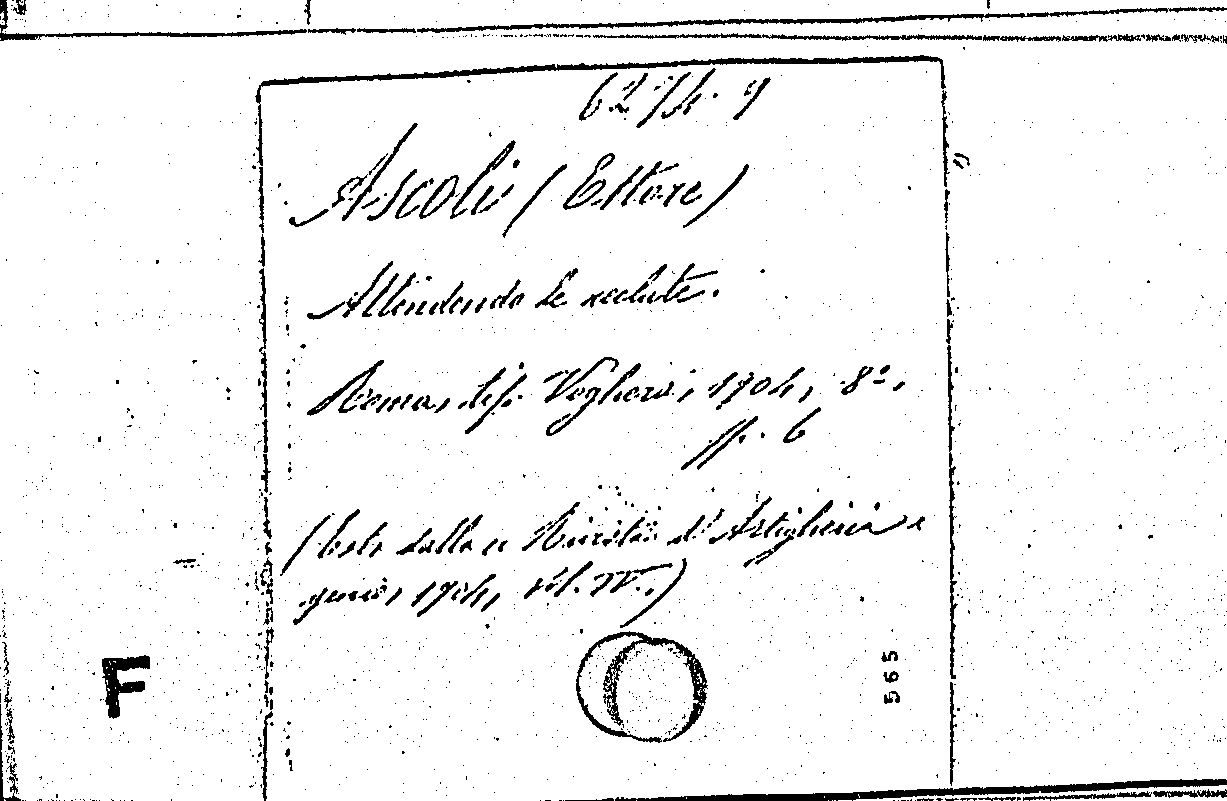 6274. 9
Ascoli (Ettore)
Attendendo le reclute.
Roma, tip. Voghera, 1904, 8º,
pp. 6
(Estr. dalla « Rivista d'Artiglieria e
genio, 1904, vol. IV.)
F
565